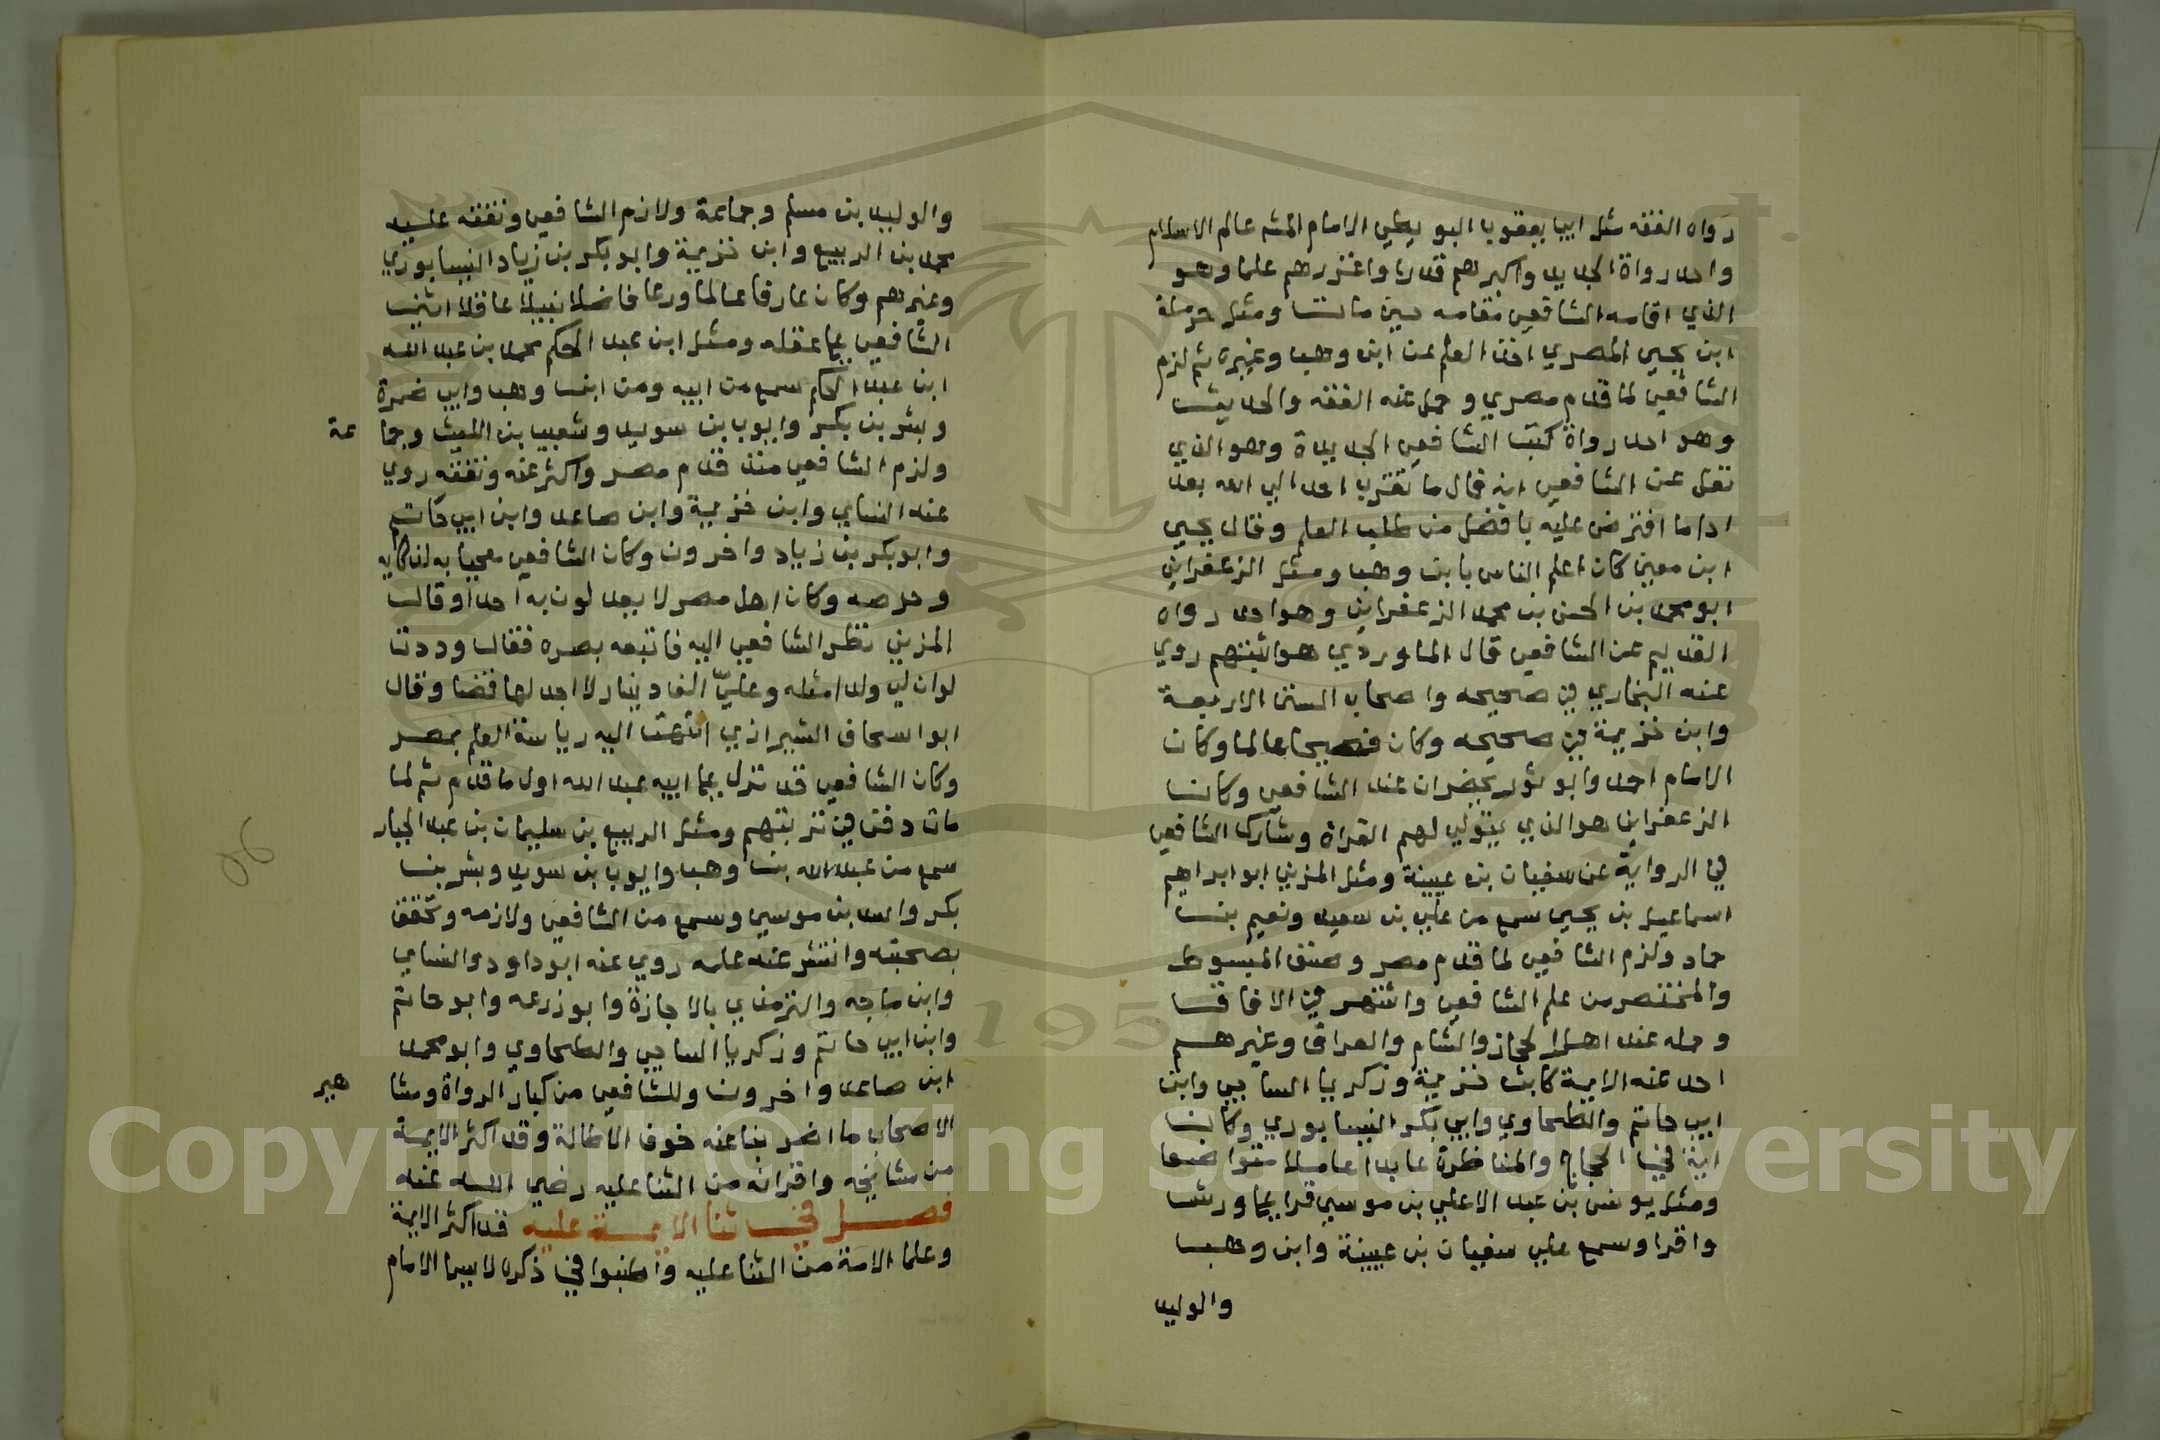 رواه الفقه مثل ابيا يعقوب البويطي الامام المتم عالم الاسلام
واحد رواة الجديد واكبرهم قدرا واغزرهم علما وهو
الذي اقامه الشافعي مقامه حين مات ومثل حرملة
ابن يحيي المصري اخذ العلم عن ابن وهب وغيره ثم لزم
الشافعي لما قدم مصري وحمل عنه الفقه والحديث
وهو احد رواة كتب الشافعي الجديدة وهو الذي
نقل عن الشافعي انه قال ما تقرب احد الي الله بعد
اداما افترض عليه بافضل من طلب العلم وقال يحيي
ابن معين كان اعلم الناس بابن وهب ومثل الزعفراني
ابو محمد بن الحسن بن محمد الزعفراني وهو احد رواه
القديم عن الشافعي قال الماوردي هو اثبتهم روي
عنه البخاري في صحيحه واصحاب السنن الاربعة
وابن خزيمة في صحيحه وكان فصيحا عالما وكان
الامام احمد وابو ثور يحضران عند الشافعي وكان
الزعفراني هو الذي يتولي لهم القراة وشارك الشافعي
في الرواية عن سفيان بن عيينة ومثل المزني ابو ابراهيم
اسماعيل بن يحيي سمع من علي بن سعيد ونعيم بن
حماد ولزم الشافعي لما قدم مصر وصنف المبسوط
والمختصر من علم الشافعي واشتهر في الافاق
وحمله عنه اهل الحجاز والشام والعراق وغيرهم
اخذ عنه الايمة كابن خزيمة وزكريا الساجي وابن
ابي حاتم والطحاوي وابي بكر النيسابوري وكان
اية في الحجاج والمناظرة عابدا عاملا متواضعا
ومثل يونس بن عبد الاعلي بن موسي قرا علي ورش
واقرا وسمع علي سفيان بن عيينة وابن وهب
والوليد
والوليد بن مسلم وجماعة ولازم الشافعي وتفقه عليه
محمد بن الربيع وابن خزيمة وابو بكر بن زياد النيسابوري
وغيرهم وكان عارفا عالما ورعا فاضلا نبيلا عاقلا اثني
الشافعي علي عقله ومثل ابن عبد الحكم محمد بن عبد الله
ابن عبد الحكم سمع من ابيه ومن ابن وهب وابي ضمرة
وبشر بن بكر وايوب بن سويد وشعيب بن الليث وجما عة
ولزم الشافعي منذ قدم مصر واكثر عنه وتفقه روي
عنه النساي وابن خزيمة وابن صاعد وابن ابي حاتم
وابو بكر بن زياد واخرون وكان الشافعي معجبا به لذكايه
وحرصه وكان اهل مصر لا يعدلون به احدا وقال
المزني نظر الشافعي اليه فاتبعه بصره فقال وددت
لوان لي ولدا مثله وعليّ الف دينار لا اجد لها قضا وقال
ابو اسحاق الشيرازي انتهت اليه رياسة العلم بمصر
وكان الشافعي قد نزل علي ابيه عبد الله اول ما قدم ثم لما
مات دفن في تربتهم ومثل الربيع بن سليمان بن عبد الجبار
سمع من عبد الله بن وهب وايوب بن سويد وبشر بن
بكر واسد بن موسي وسمع من الشافعي ولازمه وتحقق
بصحبته وانتشر عنه علمه روي عنه ابو داود والنساي
وابن ماجه والترمذي بالاجازة وابو زرعه وابو حاتم
وابن ابي حاتم وزكريا الساجي والطحاوي وابو محمد
ابن صاعد واخرون وللشافعي من كبار الرواة ومشا هير
الاصحاب ما اضربنا عنه خوف الاطالة وقد اكثر الايمة
من مشايخه واقرانه من الثنا عليه رضي الله عنه
فصل في ثنا الايمة عليه قد اكثر الايمة
وعلما الامة من الثنا عليه واطنبوا في ذكره لاسيما الامام
96
1957
Copyright © King Saud University